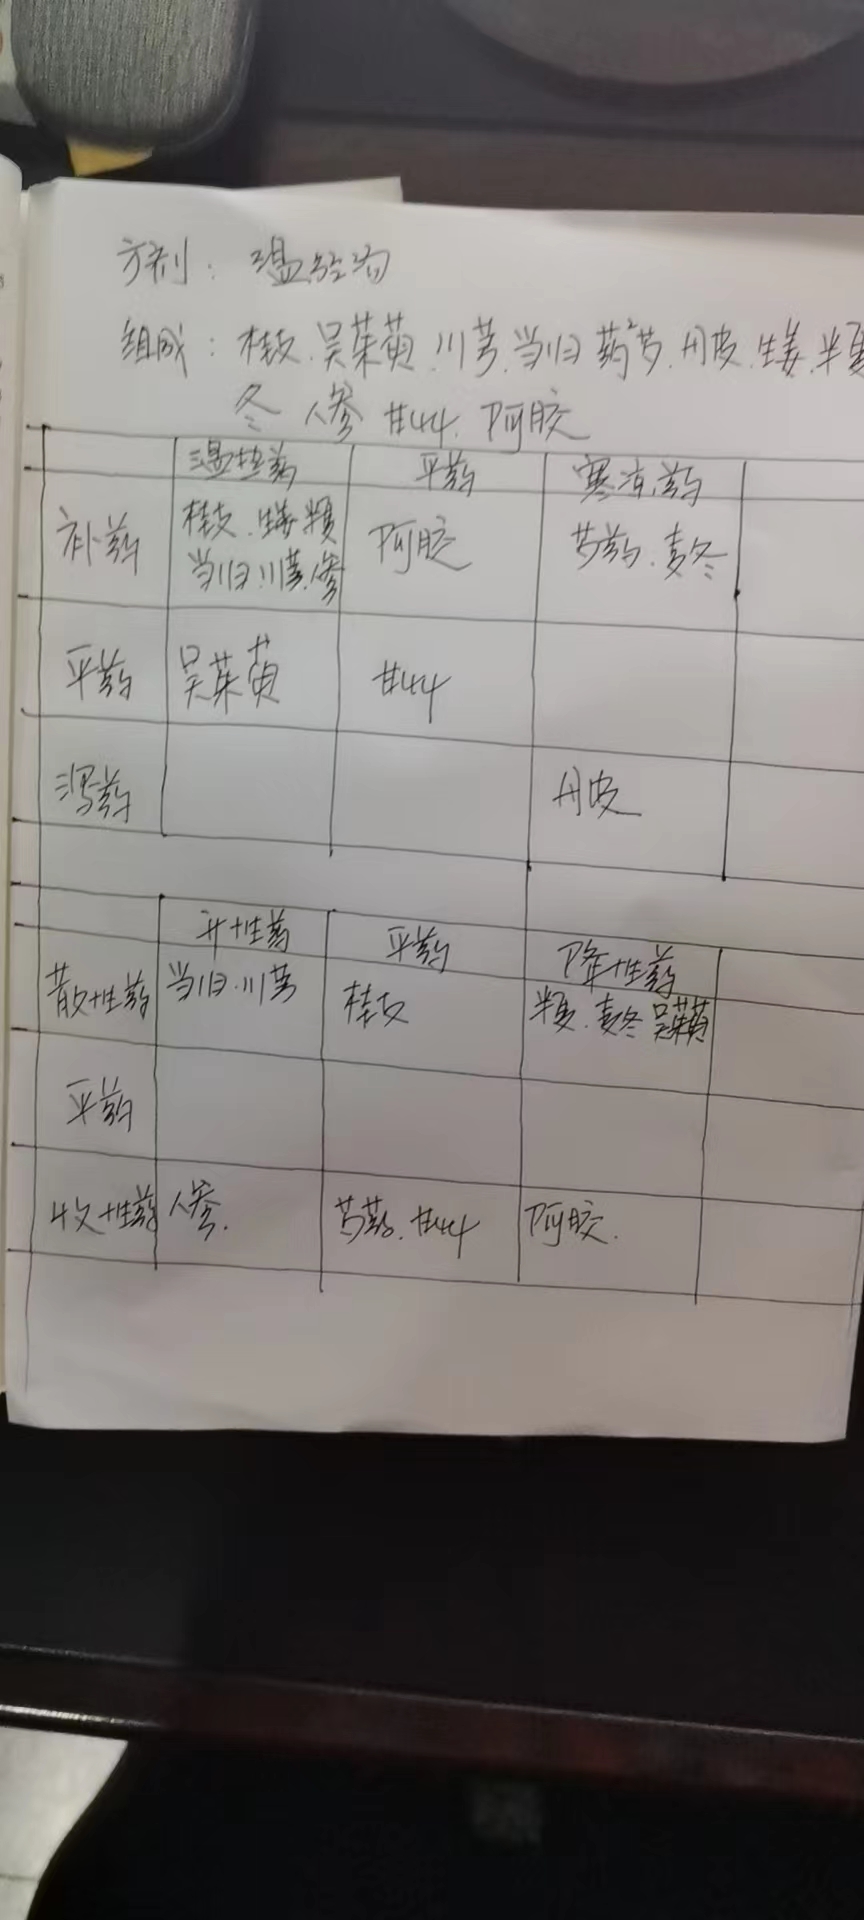 方剂：温经汤
组成：桂枝.吴茱萸.川芎.当归.芍药.丹皮.生姜.半夏
冬 人参 甘草.阿胶
温热药 平药 寒凉药
补药 桂枝.生姜.半夏 阿胶 芍药.麦冬
当归.川芎.人参
平药 吴茱萸 甘草
泻药 丹皮
升性药 平药 降性药
散性药 当归.川芎 桂枝 半夏.麦冬 吴茱萸
平药
收性药 人参. 芍药.甘草 阿胶.